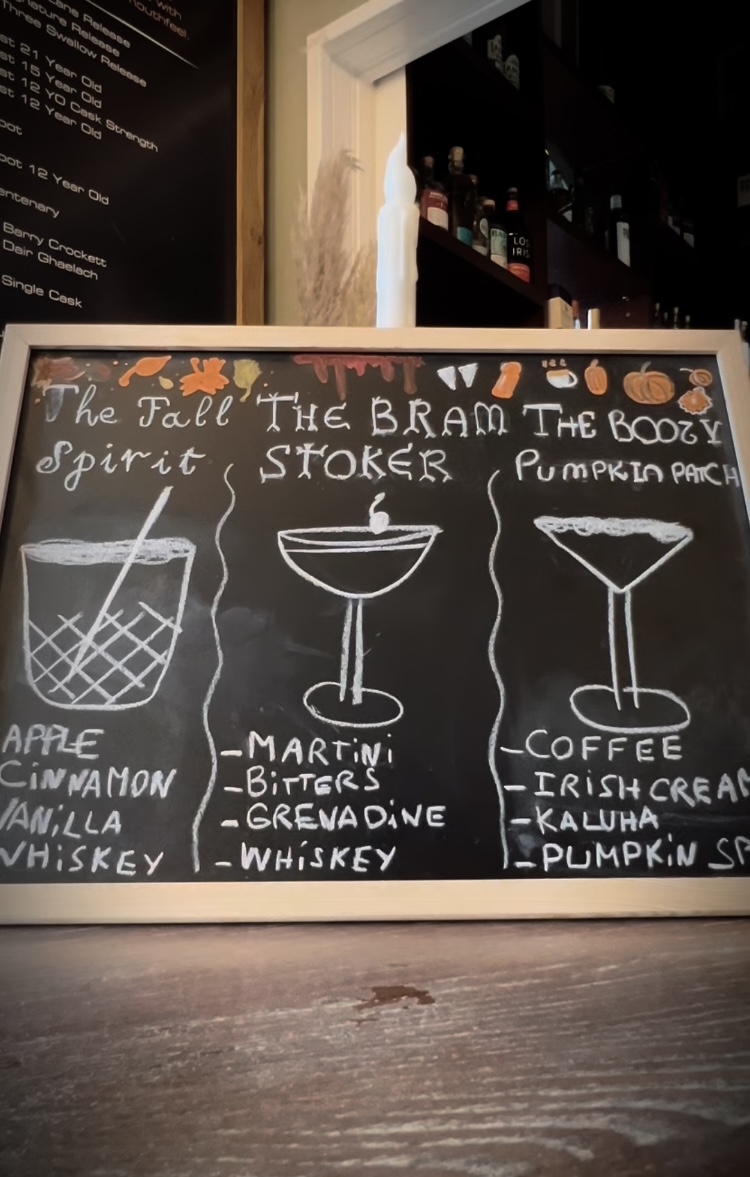 with
mouthfeel.
Lane Release
nature Release
Three Swallow Release
21 Year Old
15 Year Old
12 YO Cask Strength
12 Year Old
12 Year Old
Barry Crockett
Dair Ghaelach
Single Cask
LOS
IRIS
The Fall
Spirit
APPLE
CiNNAMON
VANiLLA
WHiSKEY
THE BRAM
STOKER
-MARTiNi
-BiTTERS
-GRENADiNE
-WHiSKEY
THE BOOZY
PUMPKIN PATCH
-COFFEE
-IRiSH CREAM
-KALUHA
-PUMPKiN SP